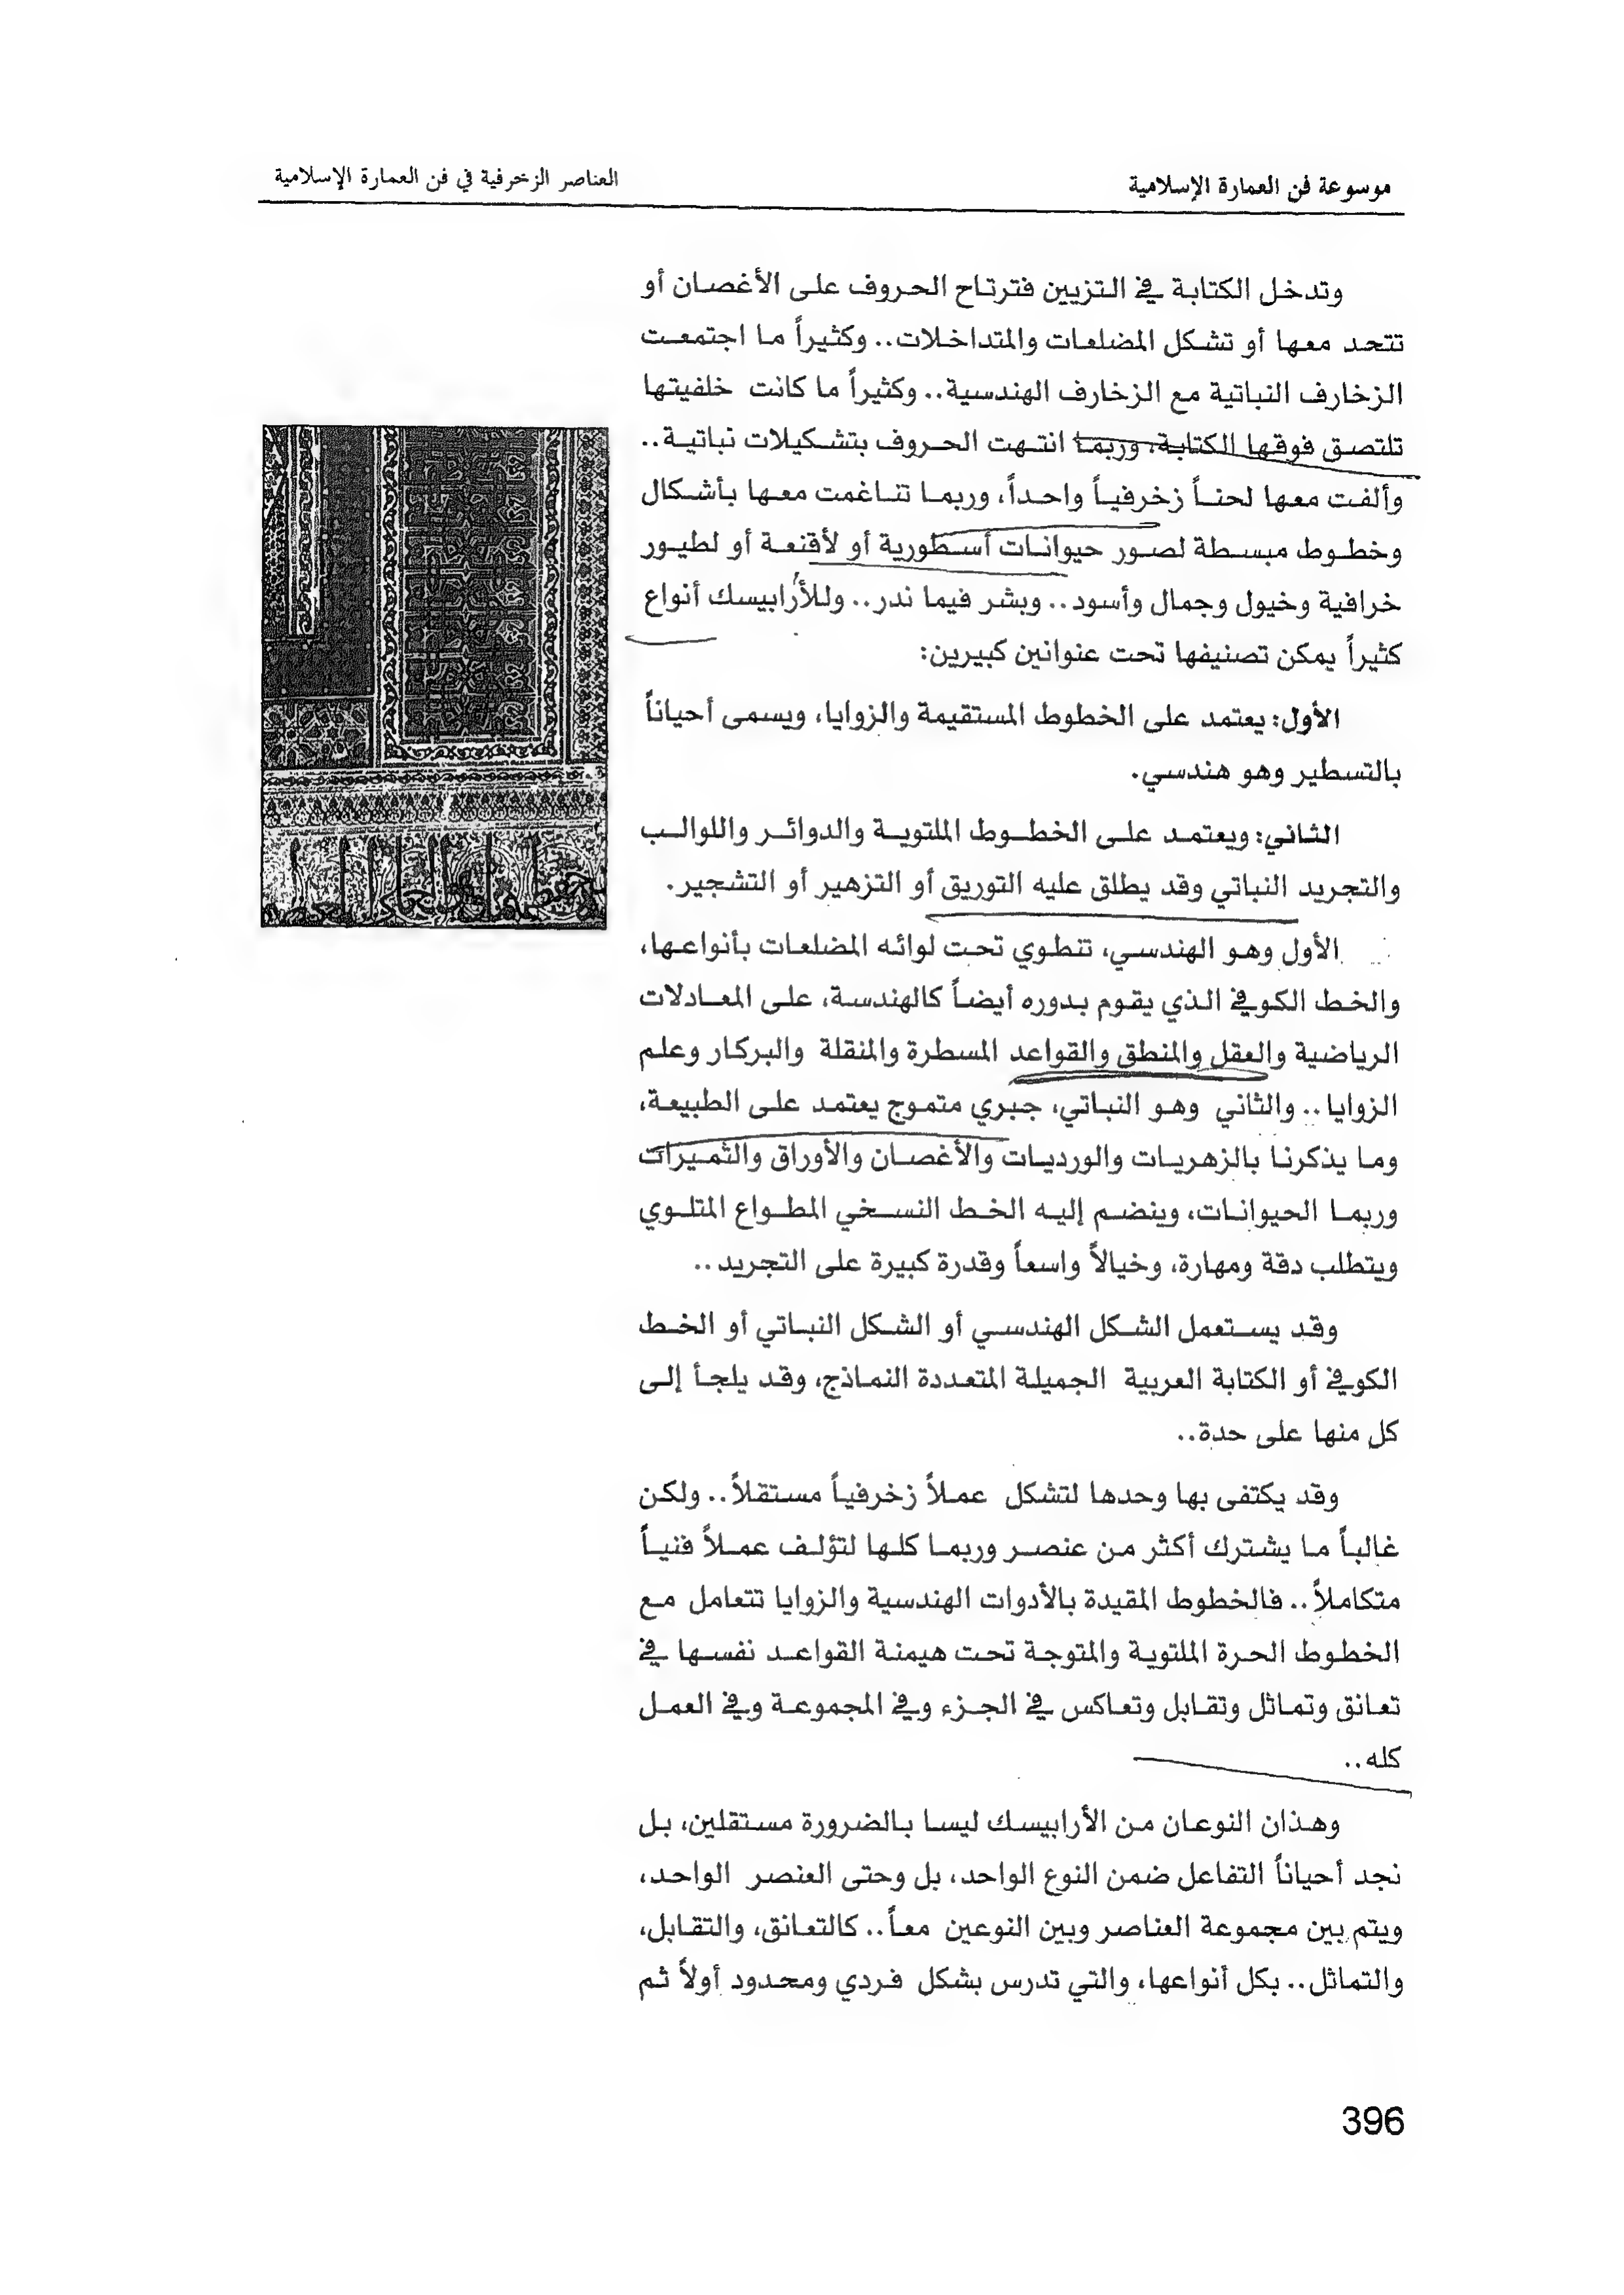 موسوعة فن العمارة الإسلامية
العناصر الزخرفية في فن العمارة الإسلامية
وتدخل الكتابة في التزيين فترتاح الحروف على الأغصان أو
تتحد معها أو تشكل المضلعات والمتداخلات.. وكثيراً ما اجتمعت
الزخارف النباتية مع الزخارف الهندسية.. وكثيراً ما كانت خلفيتها
تلتصق فوقها الكتابة، وربما انتهت الحروف بتشكيلات نباتية..
وألفت معها لحناً زخرفياً واحداً، وربما تناغمت معها بأشكال
وخطوط مبسطة لصور حيوانات أسطورية أو لأقنعة أو لطيور
خرافية وخيول وجمال وأسود.. وبشر فيما ندر.. وللأرابيسك أنواع
كثيراً يمكن تصنيفها تحت عنوانين كبيرين:
الأول: يعتمد على الخطوط المستقيمة والزوايا، ويسمى أحياناً
بالتسطير وهو هندسي.
الثاني: ويعتمد على الخطوط الملتوية والدوائر واللوالب
والتجريد النباتي وقد يطلق عليه التوريق أو التزهير أو التشجير.
الأول وهو الهندسي، تنطوي تحت لوائه المضلعات بأنواعها،
والخط الكوفي الذي يقوم بدوره أيضاً كالهندسة، على المعادلات
الرياضية والعقل والمنطق والقواعد المسطرة والمنقلة والبركار وعلم
الزوايا.. والثاني وهو النباتي، جبري متموج يعتمد على الطبيعة،
وما يذكرنا بالزهريات والورديات والأغصان والأوراق والثميرات
وربما الحيوانات، وينضم إليه الخط النسخي المطواع المتلوي
ويتطلب دقة ومهارة، وخيالاً واسعاً وقدرة كبيرة على التجريد..
وقد يستعمل الشكل الهندسي أو الشكل النباتي أو الخط
الكوفي أو الكتابة العربية الجميلة المتعددة النماذج، وقد يلجأ إلى
كل منها على حدة..
وقد يكتفى بها وحدها لتشكل عملاً زخرفياً مستقلاً.. ولكن
غالباً ما يشترك أكثر من عنصر وربما كلها لتؤلف عملاً فنياً
متكاملاً.. فالخطوط المقيدة بالأدوات الهندسية والزوايا تتعامل مع
الخطوط الحرة الملتوية والمتوجة تحت هيمنة القواعد نفسها في
تعانق وتماثل وتقابل وتعاكس في الجزء وفي المجموعة وفي العمل
كله..
وهذان النوعان من الأرابيسك ليسا بالضرورة مستقلين، بل
نجد أحياناً التفاعل ضمن النوع الواحد، بل وحتى العنصر الواحد،
ويتم بين مجموعة العناصر وبين النوعين معاً.. كالتعانق، والتقابل،
والتماثل.. بكل أنواعها، والتي تدرس بشكل فردي ومحدود أولاً ثم
396